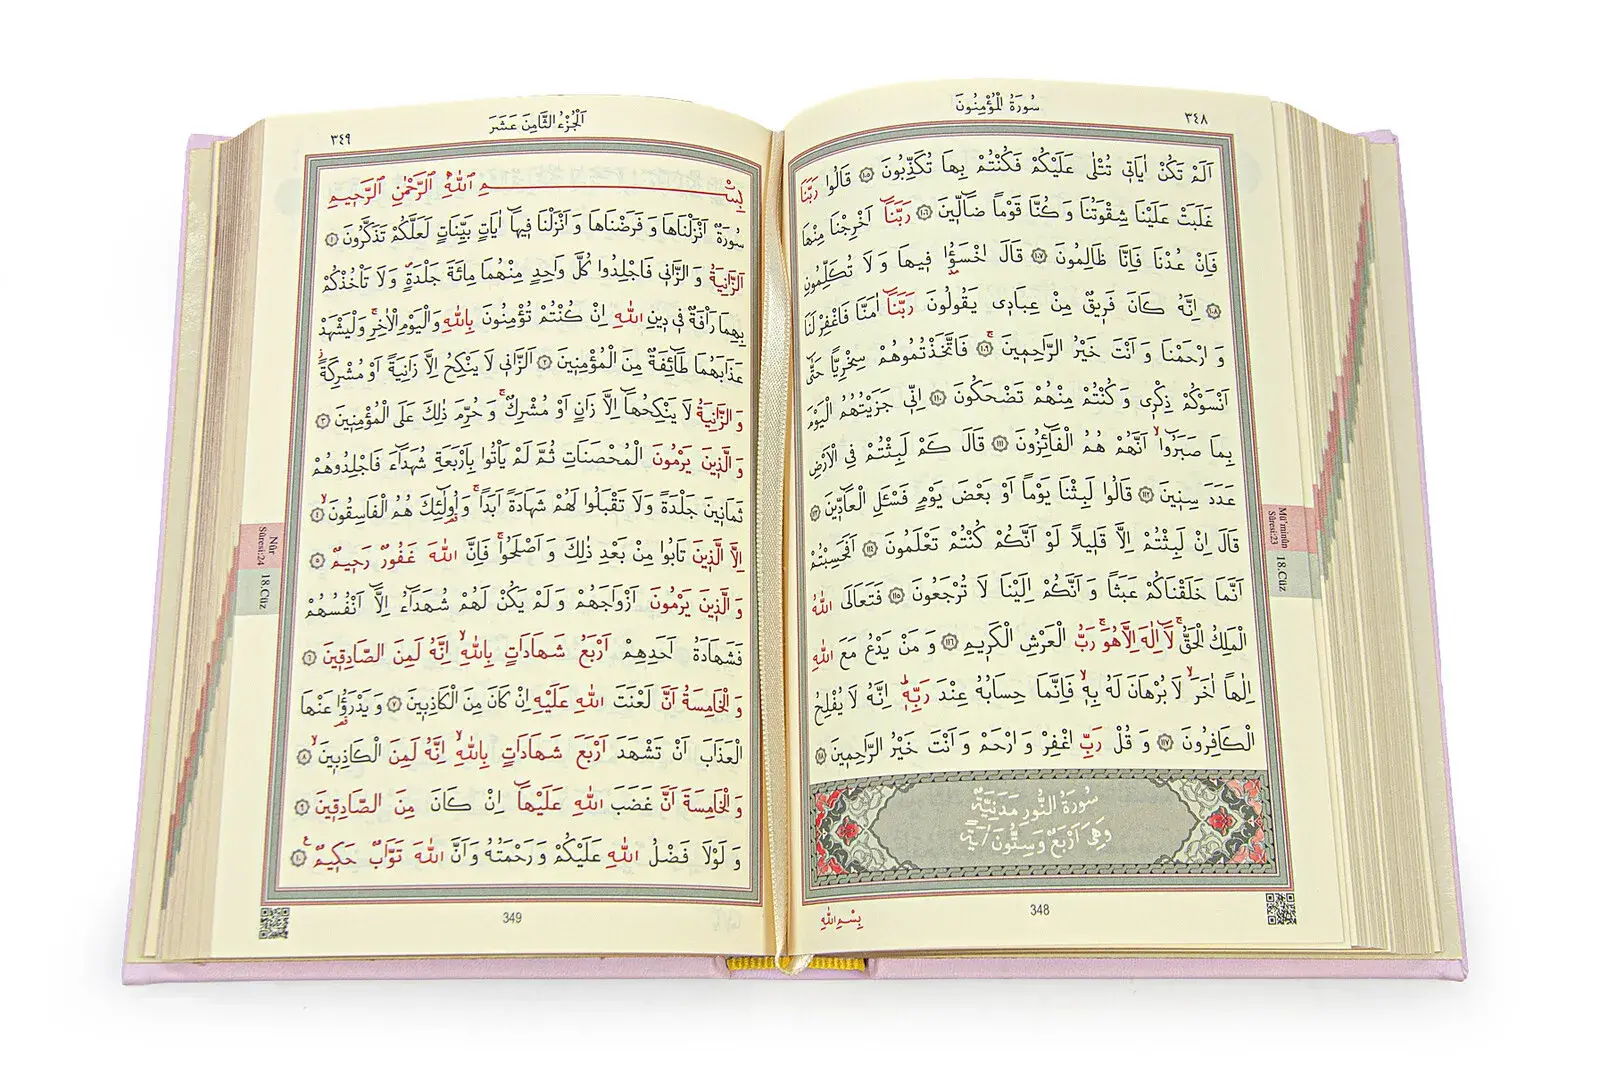 سُورَةُ الْمُؤْمِنُونَ
٣٤٨
اَلَمْ تَكُنْ اٰيَاتٖي تُتْلٰى عَلَيْكُمْ فَكُنْتُمْ بِهَا تُكَذِّبُونَ ﴿١٠٥﴾ قَالُوا رَبَّنَا
غَلَبَتْ عَلَيْنَا شِقْوَتُنَا وَ كُنَّا قَوْمًا ضَٓالّٖينَ ﴿١٠٦﴾ رَبَّنَٓا اَخْرِجْنَا مِنْهَا
فَاِنْ عُدْنَا فَاِنَّا ظَالِمُونَ ﴿١٠٧﴾ قَالَ اخْسَؤُ۫ا فٖيهَا وَ لَا تُكَلِّمُونِ
﴿١٠٨﴾ اِنَّهُ كَانَ فَرٖيقٌ مِنْ عِبَادٖي يَقُولُونَ رَبَّنَٓا اٰمَنَّا فَاغْفِرْ لَنَا
وَ ارْحَمْنَا وَ اَنْتَ خَيْرُ الرَّاحِمٖينَۚ ﴿١٠٩﴾ فَاتَّخَذْتُمُوهُمْ سِخْرِيًّا حَتّٰٓى
اَنْسَوْكُمْ ذِكْرٖي وَ كُنْتُمْ مِنْهُمْ تَضْحَكُونَ ﴿١١٠﴾ اِنّٖي جَزَيْتُهُمُ الْيَوْمَ
بِمَا صَبَرُٓواۙ اَنَّهُمْ هُمُ الْفَٓائِزُونَ ﴿١١١﴾ قَالَ كَمْ لَبِثْتُمْ فِي الْاَرْضِ
عَدَدَ سِنٖينَ ﴿١١٢﴾ قَالُوا لَبِثْنَا يَوْمًا اَوْ بَعْضَ يَوْمٍ فَسْـَٔلِ الْعَٓادّٖينَ ﴿١١٣﴾
قَالَ اِنْ لَبِثْتُمْ اِلَّا قَلٖيلًا لَوْ اَنَّكُمْ كُنْتُمْ تَعْلَمُونَ ﴿١١٤﴾ اَفَحَسِبْتُمْ
اَنَّمَا خَلَقْنَاكُمْ عَبَثًا وَ اَنَّكُمْ اِلَيْنَا لَا تُرْجَعُونَ ﴿١١٥﴾ فَتَعَالَى اللّٰهُ
الْمَلِكُ الْحَقُّۚ لَٓا اِلٰهَ اِلَّا هُوَۚ رَبُّ الْعَرْشِ الْكَرٖيمِ ﴿١١٦﴾ وَ مَنْ يَدْعُ مَعَ اللّٰهِ
اِلٰهًا اٰخَرَۙ لَا بُرْهَانَ لَهُ بِهٖۙ فَاِنَّمَا حِسَابُهُ عِنْدَ رَبِّهٖؕ اِنَّهُ لَا يُفْلِحُ
الْكَافِرُونَ ﴿١١٧﴾ وَ قُلْ رَبِّ اغْفِرْ وَ ارْحَمْ وَ اَنْتَ خَيْرُ الرَّاحِمٖينَ ﴿١١٨﴾
سُورَةُ النُّورِ مَدَنِيَّةٌ
وَهِيَ اَرْبَعٌ وَ سِتُّونَ اٰيَةً
بِسْمِ اللّٰهِ
348
Mü'minûn
Sûresi:23
18.Cüz
اَلْجُزْءُ الثَّامِنَ عَشَرَ
٣٤٩
بِسْمِ اللّٰهِ الرَّحْمٰنِ الرَّحٖيمِ
سُورَةٌ اَنْزَلْنَاهَا وَ فَرَضْنَاهَا وَ اَنْزَلْنَا فٖيهَٓا اٰيَاتٍ بَيِّنَاتٍ لَعَلَّكُمْ تَذَكَّرُونَ ﴿١﴾
اَلزَّانِيَةُ وَ الزَّانٖي فَاجْلِدُوا كُلَّ وَاحِدٍ مِنْهُمَا مِائَةَ جَلْدَةٍ وَ لَا تَاْخُذْكُمْ
بِهِمَا رَاْفَةٌ فٖي دٖينِ اللّٰهِ اِنْ كُنْتُمْ تُؤْمِنُونَ بِاللّٰهِ وَ الْيَوْمِ الْاٰخِرِۚ وَلْيَشْهَدْ
عَذَابَهُمَا طَٓائِفَةٌ مِنَ الْمُؤْمِنٖينَ ﴿٢﴾ اَلزَّانٖي لَا يَنْكِحُ اِلَّا زَانِيَةً اَوْ مُشْرِكَةًؗ
وَ الزَّانِيَةُ لَا يَنْكِحُهَٓا اِلَّا زَانٍ اَوْ مُشْرِكٌۚ وَ حُرِّمَ ذٰلِكَ عَلَى الْمُؤْمِنٖينَ ﴿٣﴾
وَ الَّذٖينَ يَرْمُونَ الْمُحْصَنَاتِ ثُمَّ لَمْ يَاْتُوا بِاَرْبَعَةِ شُهَدَٓاءَ فَاجْلِدُوهُمْ
ثَمَانٖينَ جَلْدَةً وَ لَا تَقْبَلُوا لَهُمْ شَهَادَةً اَبَدًاۚ وَ اُو۬لٰٓئِكَ هُمُ الْفَاسِقُونَۙ ﴿٤﴾
اِلَّا الَّذٖينَ تَابُوا مِنْ بَعْدِ ذٰلِكَ وَ اَصْلَحُواۚ فَاِنَّ اللّٰهَ غَفُورٌ رَحٖيمٌ ﴿٥﴾
وَ الَّذٖينَ يَرْمُونَ اَزْوَاجَهُمْ وَ لَمْ يَكُنْ لَهُمْ شُهَدَٓاءُ اِلَّٓا اَنْفُسُهُمْ
فَشَهَادَةُ اَحَدِهِمْ اَرْبَعُ شَهَادَاتٍ بِاللّٰهِۙ اِنَّهُ لَمِنَ الصَّادِقٖينَ ﴿٦﴾
وَ الْخَامِسَةُ اَنَّ لَعْنَتَ اللّٰهِ عَلَيْهِ اِنْ كَانَ مِنَ الْكَاذِبٖينَ ﴿٧﴾ وَ يَدْرَؤُ۬ا عَنْهَا
الْعَذَابَ اَنْ تَشْهَدَ اَرْبَعَ شَهَادَاتٍ بِاللّٰهِۙ اِنَّهُ لَمِنَ الْكَاذِبٖينَۙ ﴿٨﴾
وَ الْخَامِسَةَ اَنَّ غَضَبَ اللّٰهِ عَلَيْهَٓا اِنْ كَانَ مِنَ الصَّادِقٖينَ ﴿٩﴾
وَ لَوْلَا فَضْلُ اللّٰهِ عَلَيْكُمْ وَ رَحْمَتُهُ وَ اَنَّ اللّٰهَ تَوَّابٌ حَكٖيمٌ ﴿١٠﴾
349
Nûr
Sûresi:24
18.Cüz